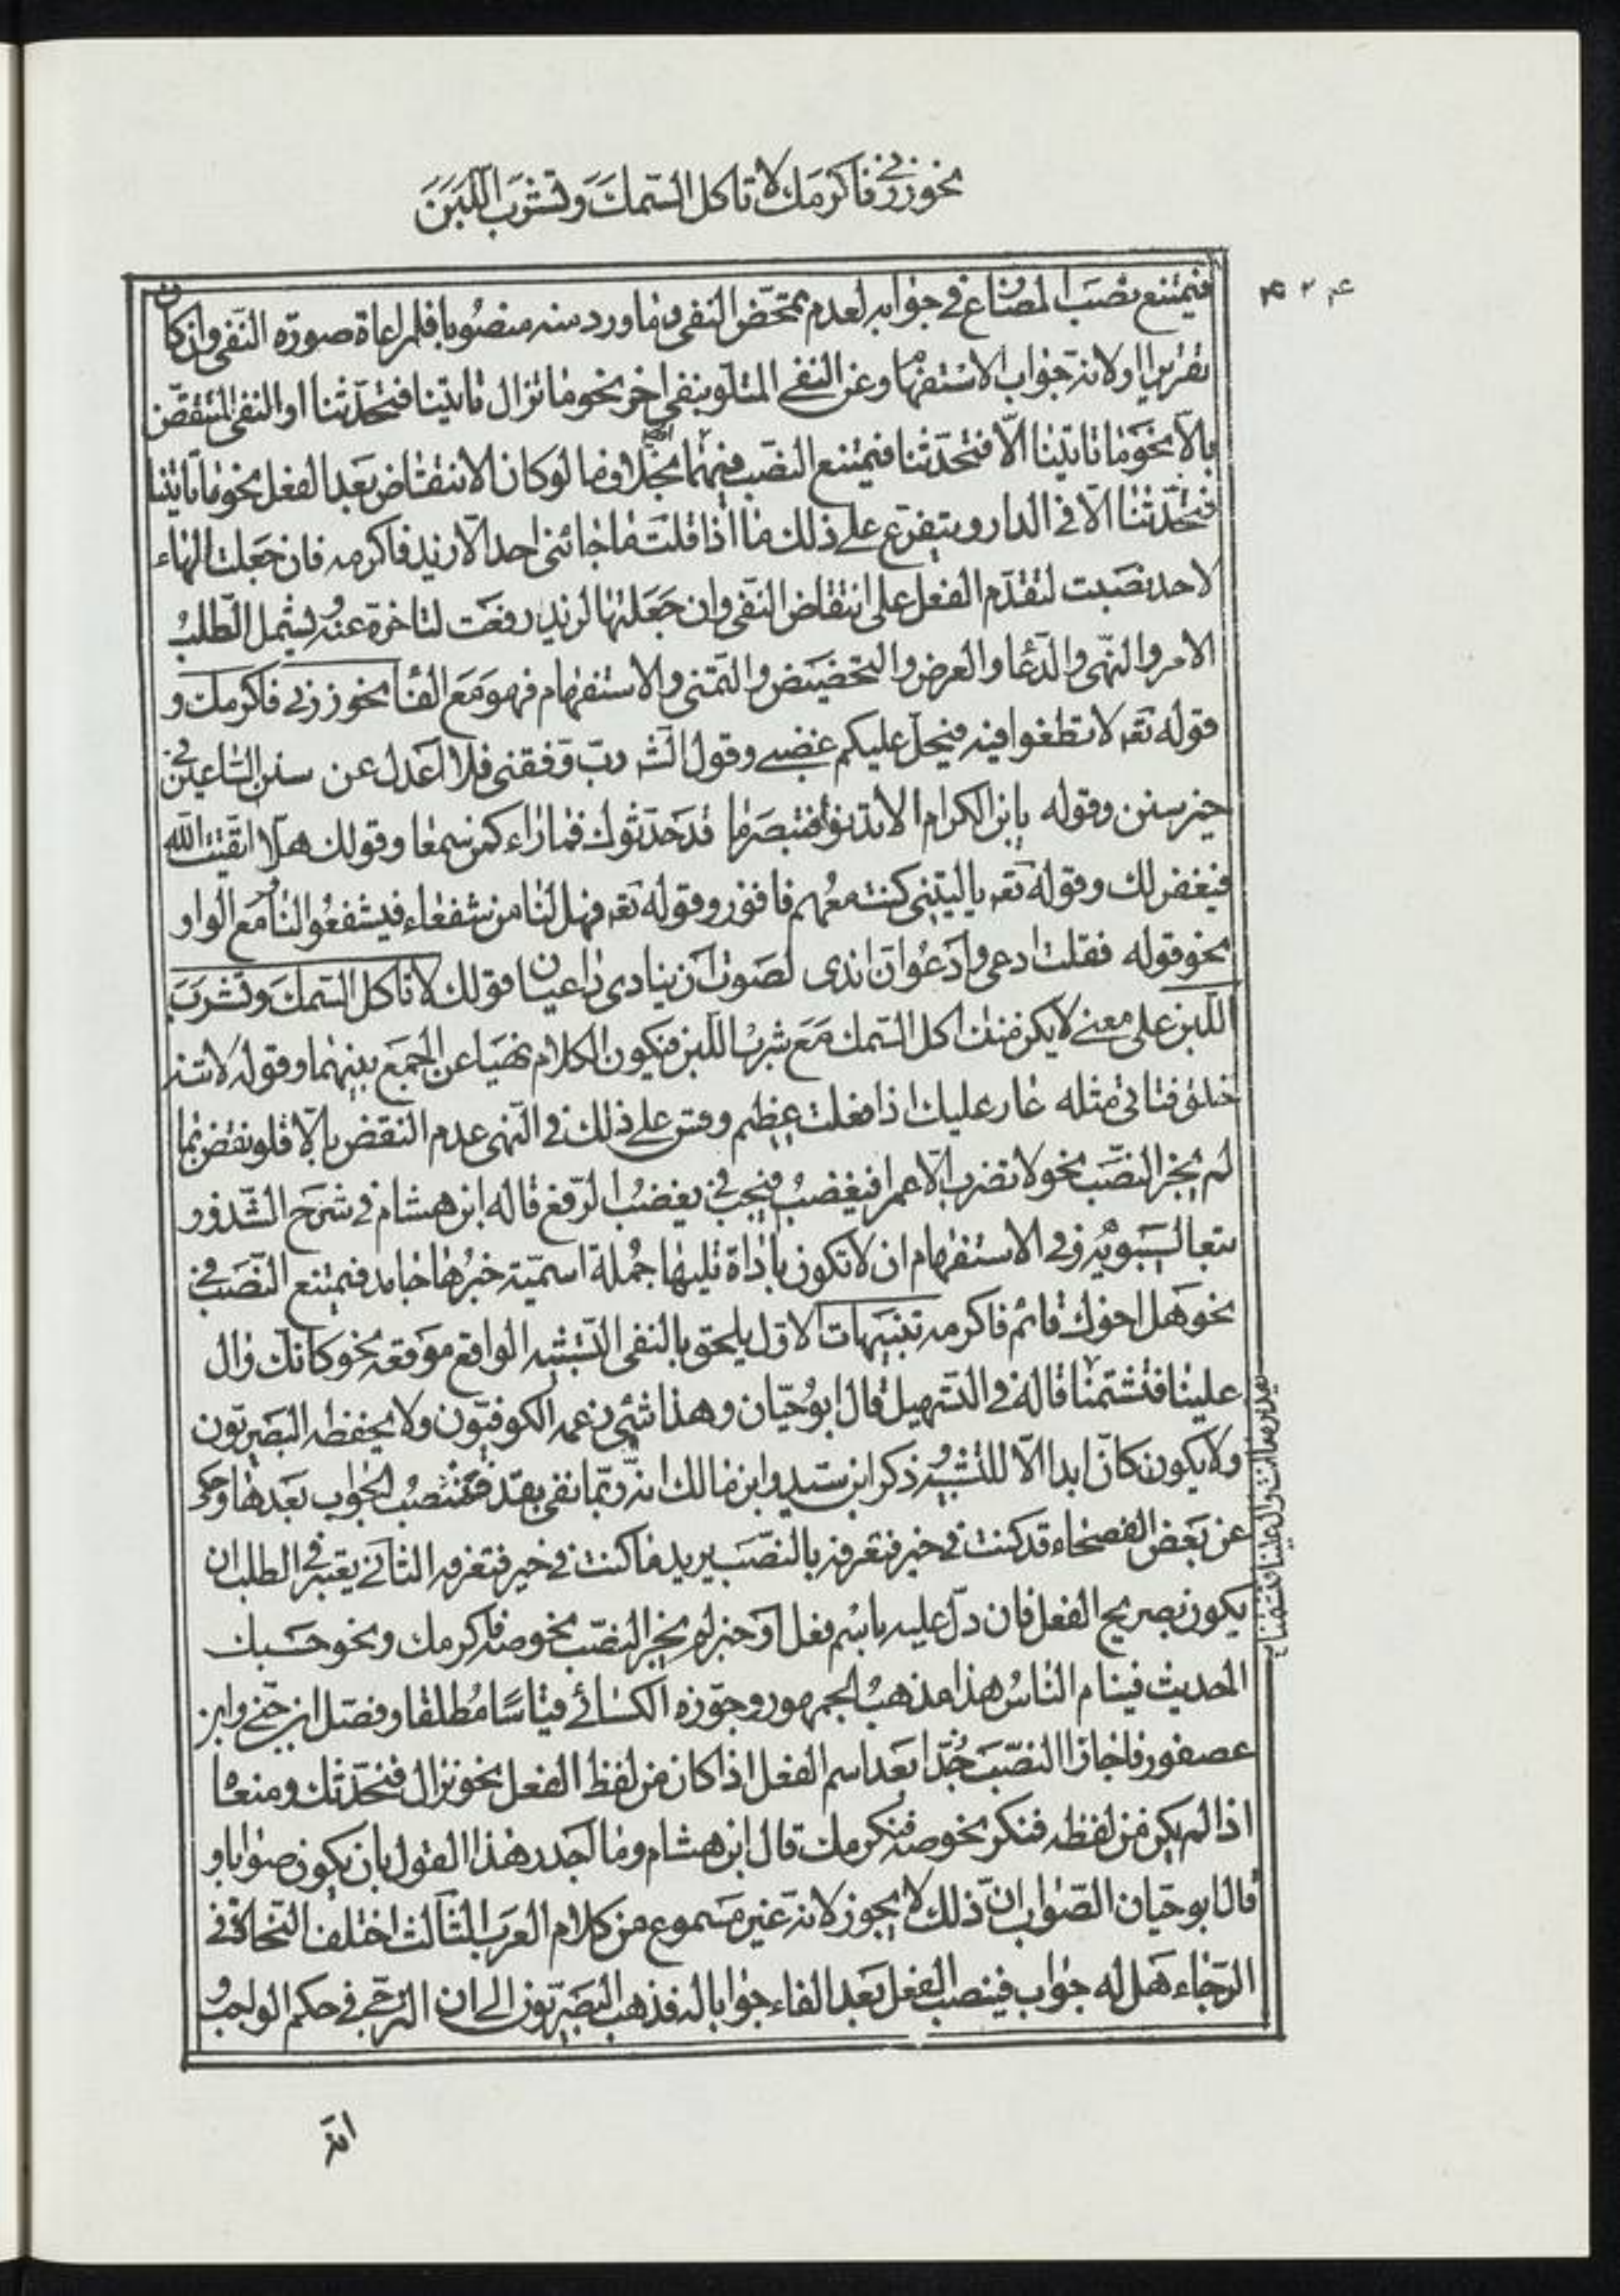 نحو زرنی فاکرمک لا تاکل السّمکَ وتشربَ اللّبَنَ
۴۲۴
فیمتنع نصبَ المضارع فی جوابه لعدم تمحّض النفی وما ورد منه منصُوبا فلمراعاة صورة النّفی وان کان
تقریرا اولانه جواب الاستفهام وعن النفی المتلو بنفی اخر نحو ما تزال تاتینا فتحدّثنا او النفی المنتقض
بالّا نحو ما تاتینا الّا فتحدّثنا فیمتنع النصب فیهما بخلاف ما لو کان الانتقاض بعد الفعل نحو ما تاتینا
فتحدّثنا الّا فی الدار ویتفرّع علی ذلک ما اذا قلت ما جائنی احد الّا زید فاکرمه فان جعلت الهاء
لاحد نصبت لتقدّم الفعل علی انتقاض النّفی وان جعلتها لزید رفعت لتاخره عنه ویشمل الطّلبُ
الامر والنهی والدّعا والعرض والتحضیض والتّمنی والاستفهام فهو مع الفا نحو زرنی فاکرمک و
قوله تعه لا تطغوا فیه فیحلّ علیکم غضبی وقول الشه ربّ وفقنی فلا اعدل عن سنن السّاعین فی
خیر سنن وقوله یابن الکرام الا تدنو فتبصر ما قد حدّثوک فما راء کمن سمعا وقولک هلّا اتّقیت اللّه
فیغفر لک وقوله تعه یا لیتنی کنت معهم فافوز وقوله تعه فهل لنا من شفعاء فیشفعُوا لنا ومع الواو
نحو قوله فقلت ادعی وادعُوان اندی لصوت ان ینادی داعیان وقولک لا تاکل السّمک وتشربَ
اللبن علی معنی لا یکن منک اکل السّمک مع شرب اللّبن فیکون الکلام نهیا عن الجمع بینهما وقوله لا تنه
عن خلق وتاتی مثله عار علیک اذا فعلت عظیم وقس علی ذلک فی النّهی عدم النقض بالّا فلو نقض بها
لم یجز النصّب نحو لا تضرب الّا عمرا فیغضبُ فیجب فی یغضبُ الرّفع قاله ابن هشام فی شرح الشّذور
تبعا لسیبویه وفی الاستفهام ان لا تکون باداة تلیها جُملة اسمیّة خبرُها جامد فیمتنع النّصب فی
نحو هل اخوک قائم فاکرمه تنبیهات الاوّل یلحق بالنفی التّشبیه الواقع موقعه نحو کانّک وال
علینا فتشتمنا قاله فی التسهیل قال ابو حیّان وهذا شیء زعمه الکوفیّون ولا یحفظه البصریّون
ولا یکون کانّ ابدا الّا للتشبیه وذکر ابن سیده وابن مالک انّه ربّما نفی بقد فینتصبُ الجواب بعدها وحکی
عن بعض الفصحاء قد کنت فی خیر فتعرفه بالنصّب یرید ما کنت فی خیر فتعرفه الثانی یعتبر فی الطلب ان
یکون بصریح الفعل فان دلّ علیه باسم فعل او خبر لم یجز النصّب نحو صه فاکرمک ونحو حسبک
الحدیث فینام الناسُ هذا مذهبُ الجمهور وجوّزه الکسائی قیاسًا مُطلقا وفصّل ابن جنّی وابن
عصفور فاجازا النصّب بعد اسم الفعل اذا کان من لفظ الفعل نحو نزال فنحدّثک ومنعاه
اذا لم یکن من لفظه نحو صه فنکرمک قال ابن هشام وما اجدر هذا القول بان یکون صوابا و
قال ابو حیّان الصّواب انّ ذلک لا یجوز لانه غیر مسموع من کلام العرب الثالث اختلف النّحاة فی
الرّجاء هل له جواب فینصب الفعل بعد الفاء جوابا له فذهب البصریّون الی ان الترجّی فی حکم الواجب و
انّه